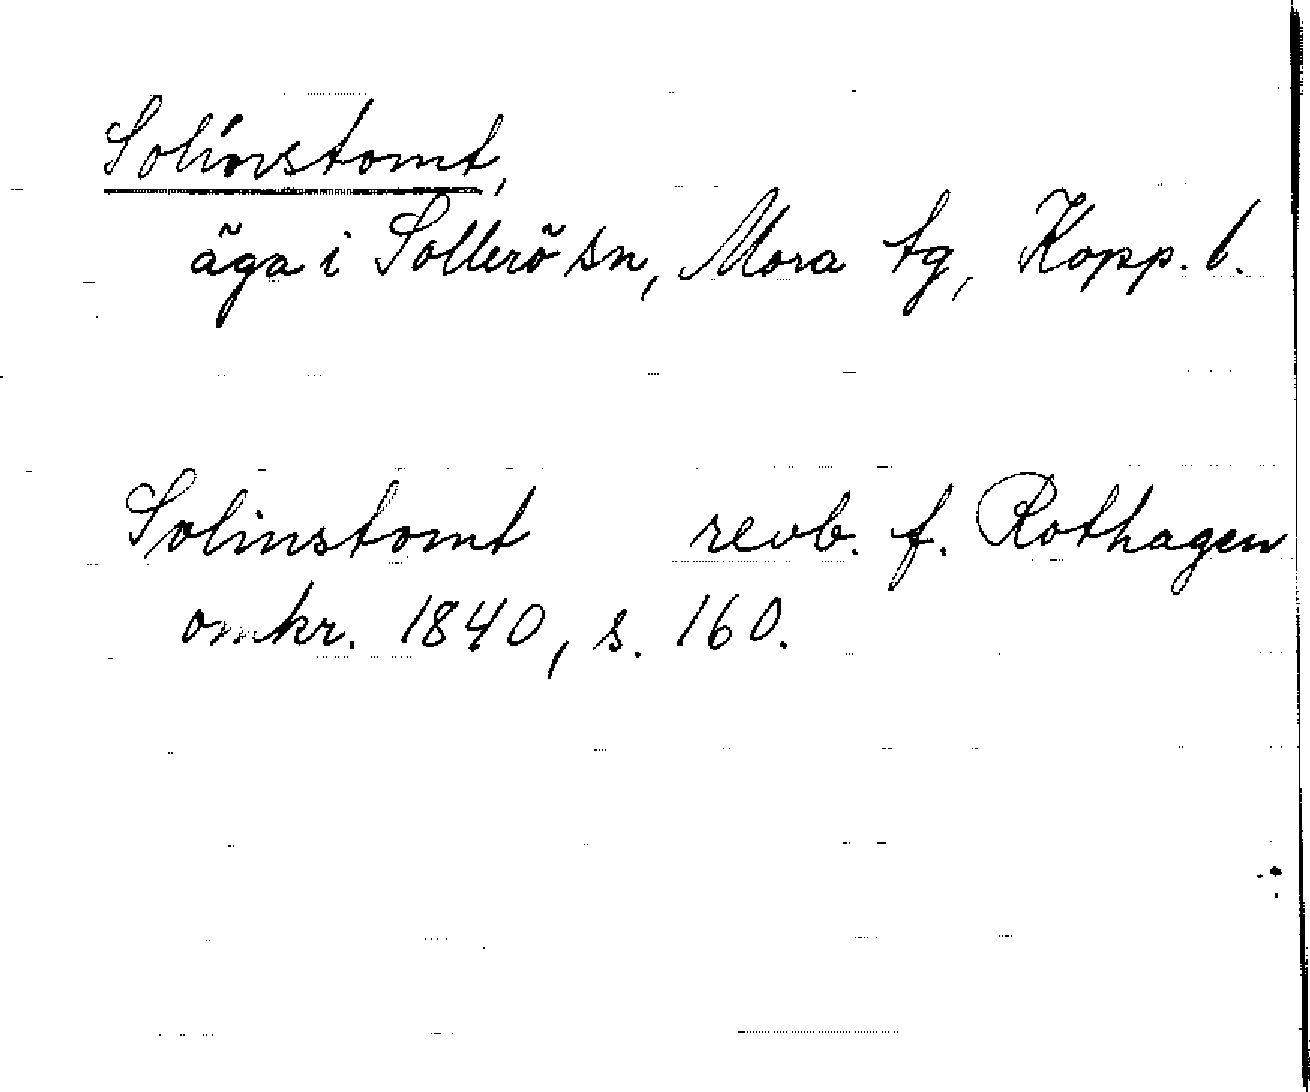 Solinstomt,
äga i Sollerö sn, Mora tg, Kopp. l.
Solinstomt revb. f. Rothagen
omkr. 1840, s. 160.